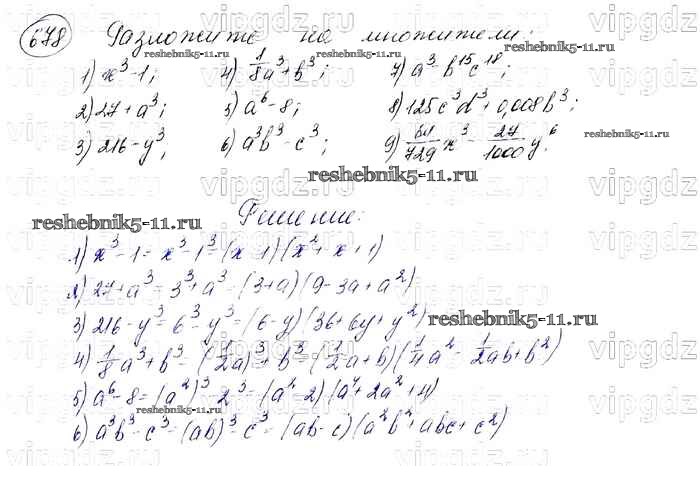 678 Разложите на множители:
1) x³-1; 4) 1/8a³+b³; 7) a³-b¹⁵c¹⁸;
2) 27+a³; 5) a⁶-8; 8) 125c³d³+0,008b³;
3) 216-y³; 6) a³b³-c³; 9) 64/729x³-27/1000y⁶.
Решение:
1) x³-1=x³-1³=(x-1)(x²+x+1)
2) 27+a³=3³+a³=(3+a)(9-3a+a²)
3) 216-y³=6³-y³=(6-y)(36+6y+y²)
4) 1/8a³+b³=(1/2a)³+b³=(1/2a+b)(1/4a²-1/2ab+b²)
5) a⁶-8=(a²)³-2³=(a²-2)(a⁴+2a²+4)
6) a³b³-c³=(ab)³-c³=(ab-c)(a²b²+abc+c²)
vipgdz
reshebnik5-11.ru